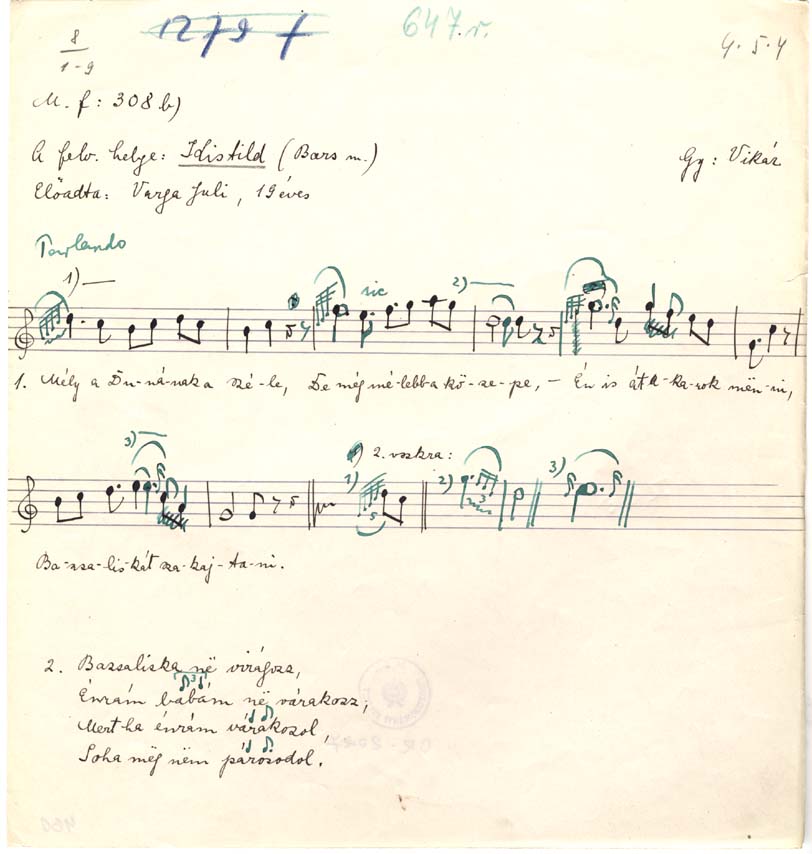 8
1-9
1279 f
647.r.
4.5.4
M. f: 308 b)
A felv. helye: Idistild (Bars m.)
Gy: Vikár
Előadta: Varga Juli, 19 éves
Parlando
1) sic 2)
1. Mély a Du-ná-nak a szé-le, De még mé-lebb a kö-ze-pe, – Én is át a-ka-rok mën-ni,
3) 1) 2. vszkra: 2) 3)
5 3
Ba-zsa-lis-kát sza-kaj-ta-ni.
2. Bazsaliska në virágozz,
Énrám babám në várakozz,
Mert ha énrám várakozol,
Soha még nëm párosodol.